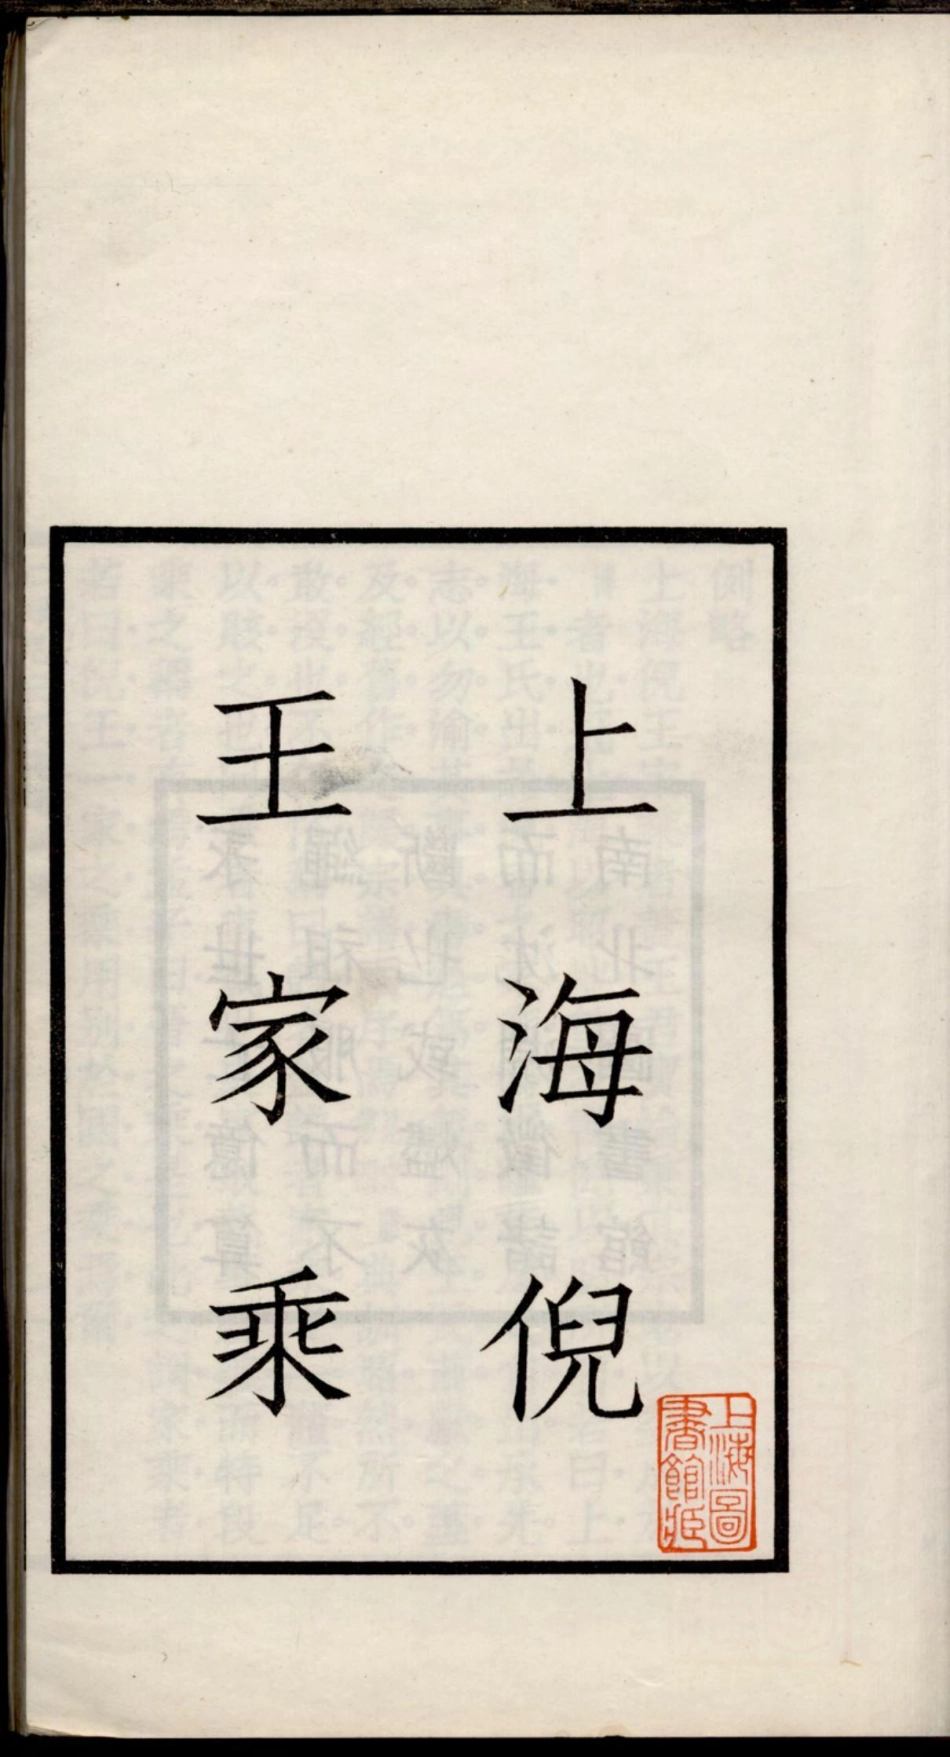 上海倪
王家乘
上海圖
書館藏